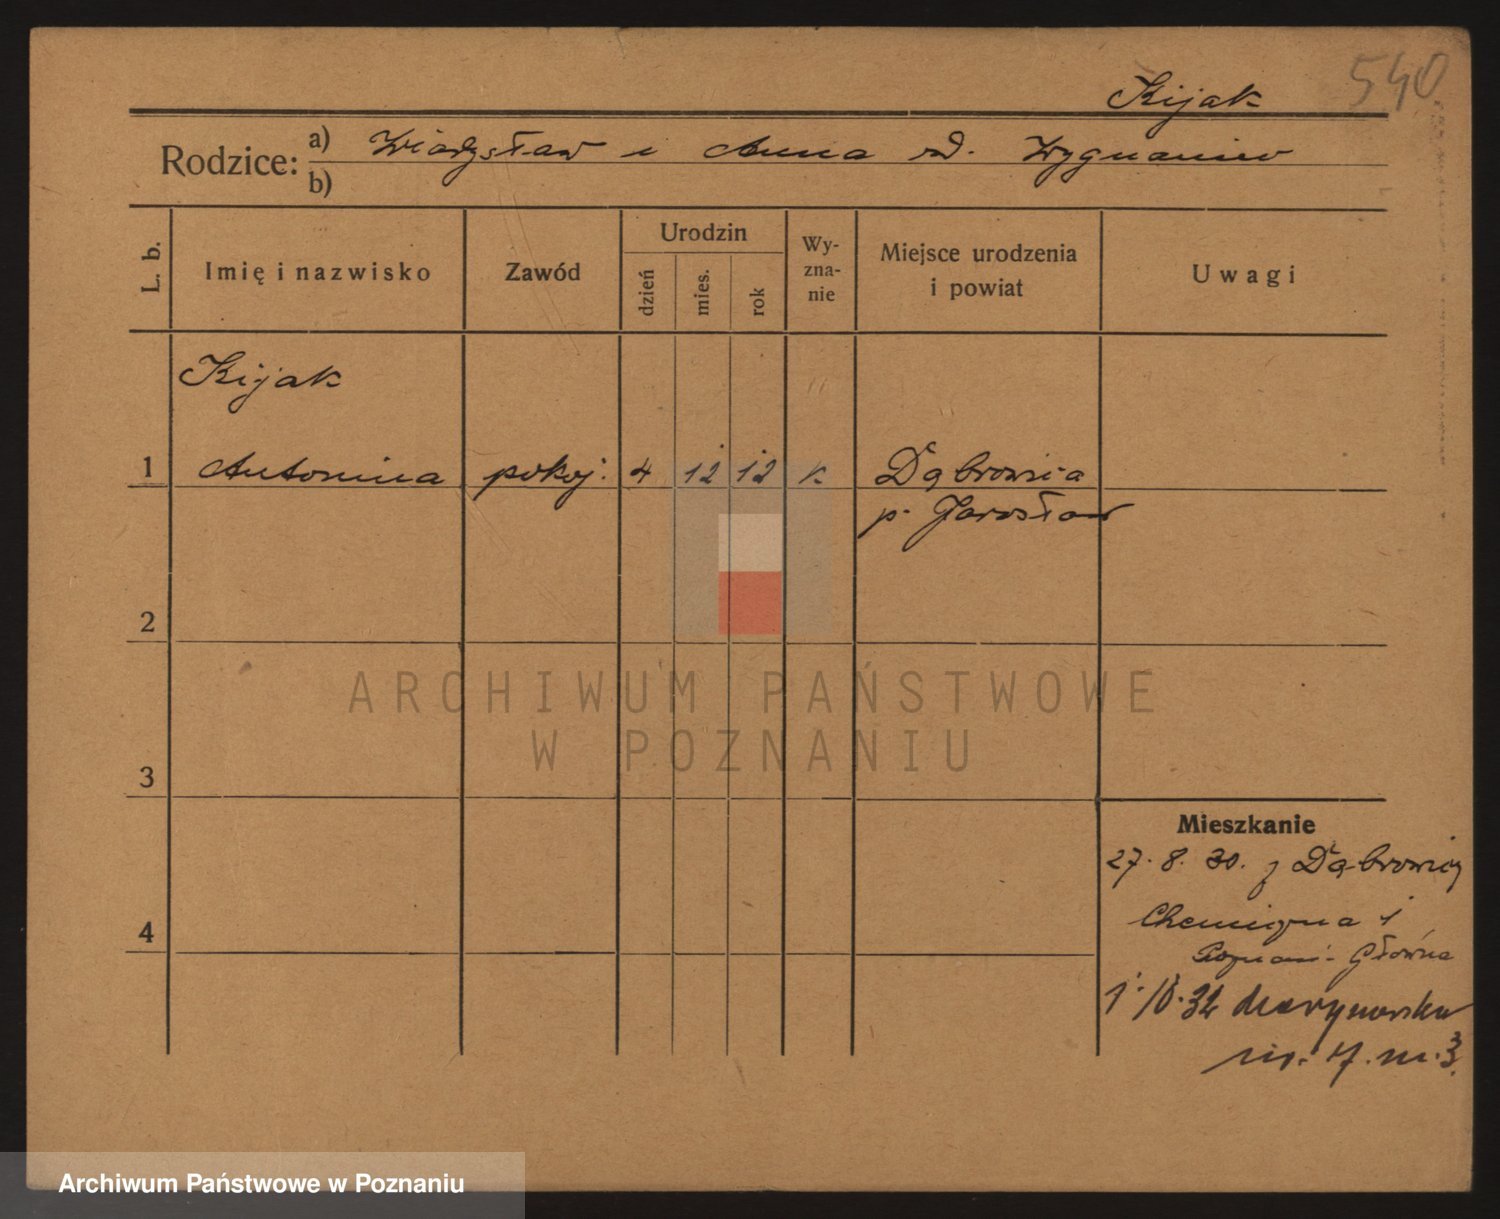 540
Kijak
Rodzice: a) Władysław i Anna rd. Wygnaniec
b)
L. b. Imię i nazwisko Zawód Urodzin dzień mies. rok Wyznanie Miejsce urodzenia i powiat Uwagi
Kijak
1 Antonina pokoj. 4 12 12 k Dąbrowica
p. Jarosław
2
ARCHIWUM PAŃSTWOWE
W POZNANIU
3
Mieszkanie
27. 8. 30. z Dąbrowicy
4
Chemiczna 1
Poznań-Główna
1. 10. 32 Marynarska
17. m. 3.
Archiwum Państwowe w Poznaniu